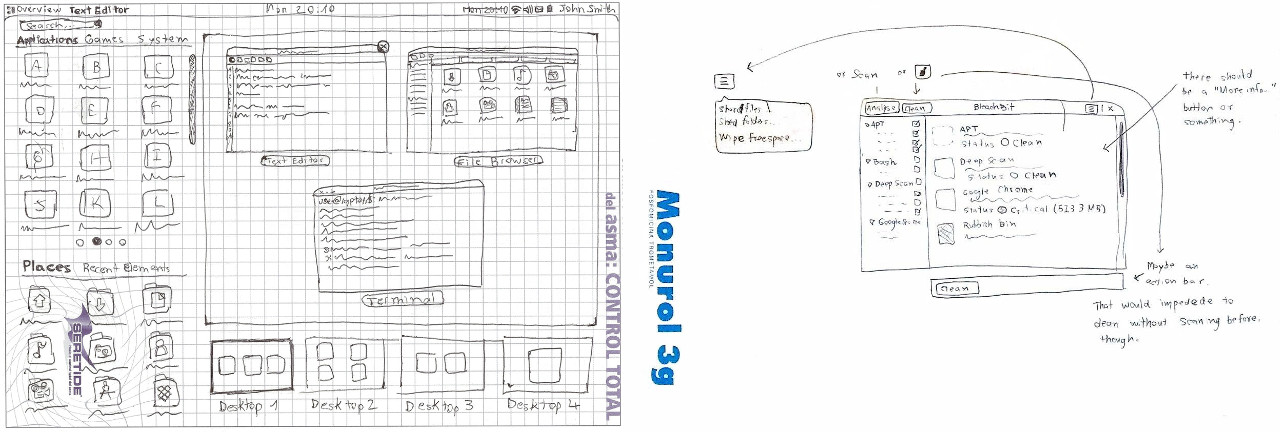 Overview Text Editor
Mon 20:10
Mon 20:10
John Smith
Search...
Applications Games System
A B C
D E F
G H I
S K L
Places Recent Elements
Text Editor
File Browser
user@laptop:$
Terminal
Desktop 1
Desktop 2
Desktop 3
Desktop 4
SERETIDE
del asma: CONTROL TOTAL
Monurol 3g
FOSFOMICINA TROMETAMOL
or Scan or
Shred files
Shred folders...
Wipe Freespace...
Analyse Clean BleachBit X
APT
Bash
Deep Scan
Google
APT
Status Clean
Deep Scan
Status Clean
Google Chrome
Status Critical (513.3 MB)
Rubbish bin
there should
be a "More info..."
button or
something.
Clean
Maybe an
action bar.
That would impedede to
clean without scanning before,
though.